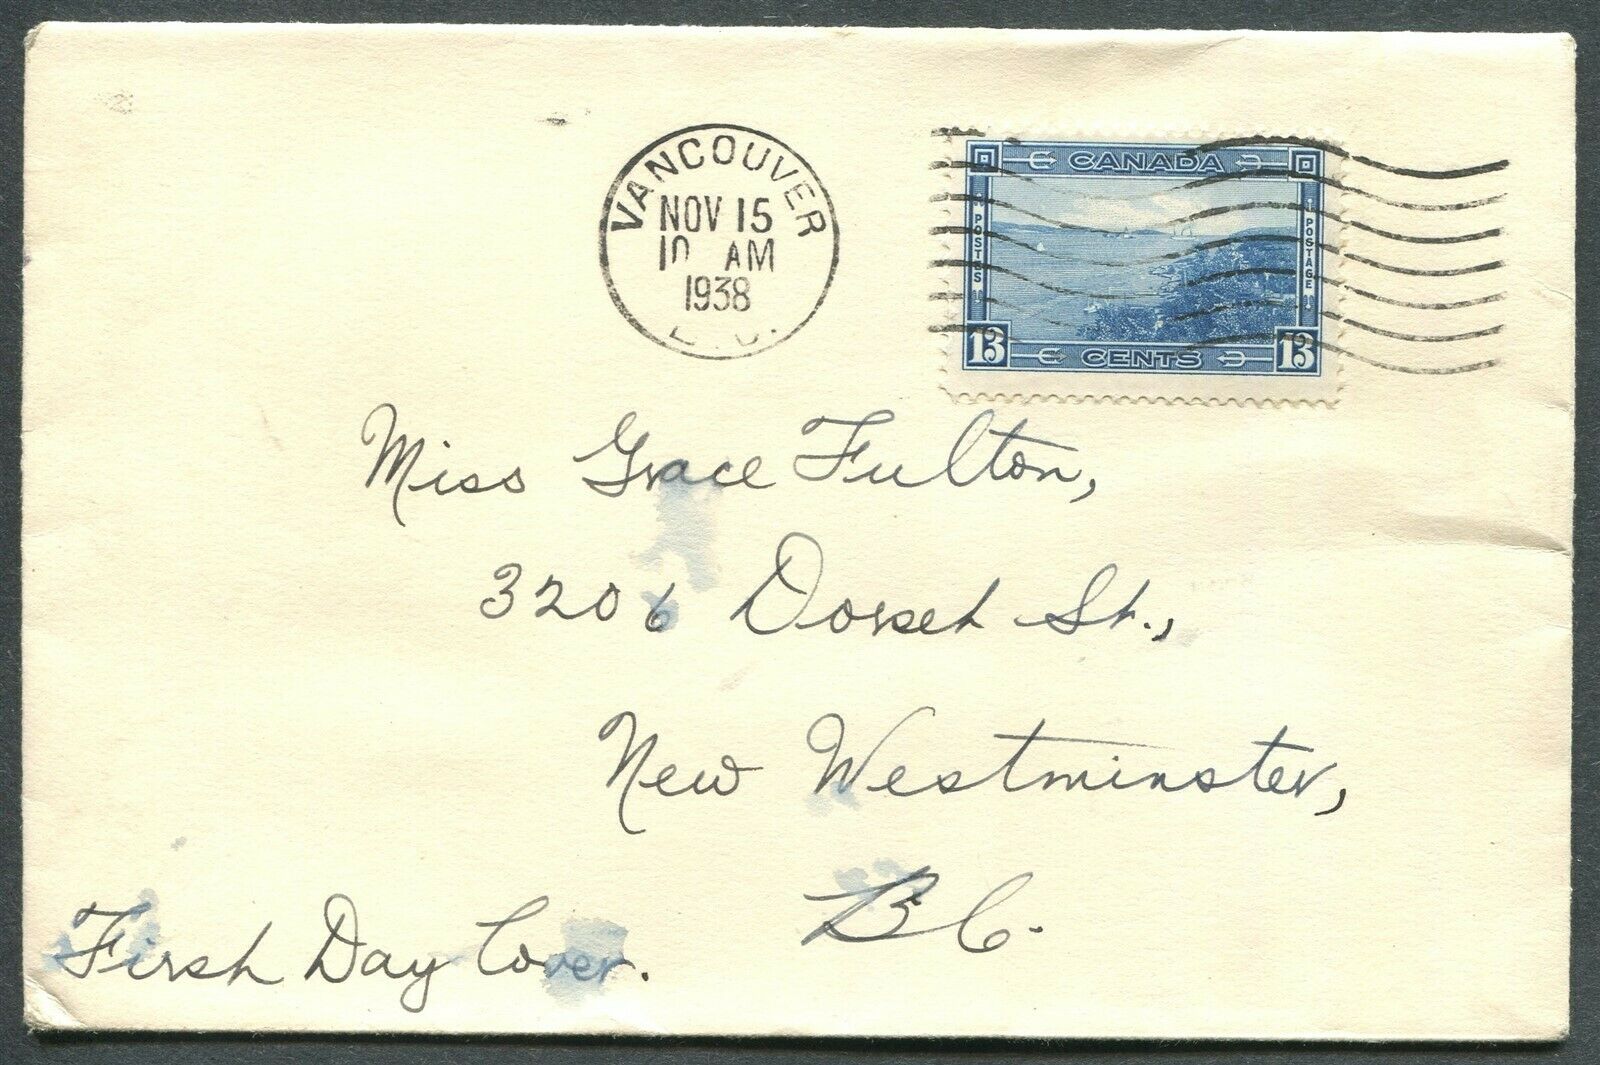 VANCOUVER
NOV 15
10 AM
1938
B.C.
CANADA
POSTES
POSTAGE
13 CENTS 13
Miss Grace Fulton,
3206 Dorset St.,
New Westminster,
B.C.
First Day Cover.